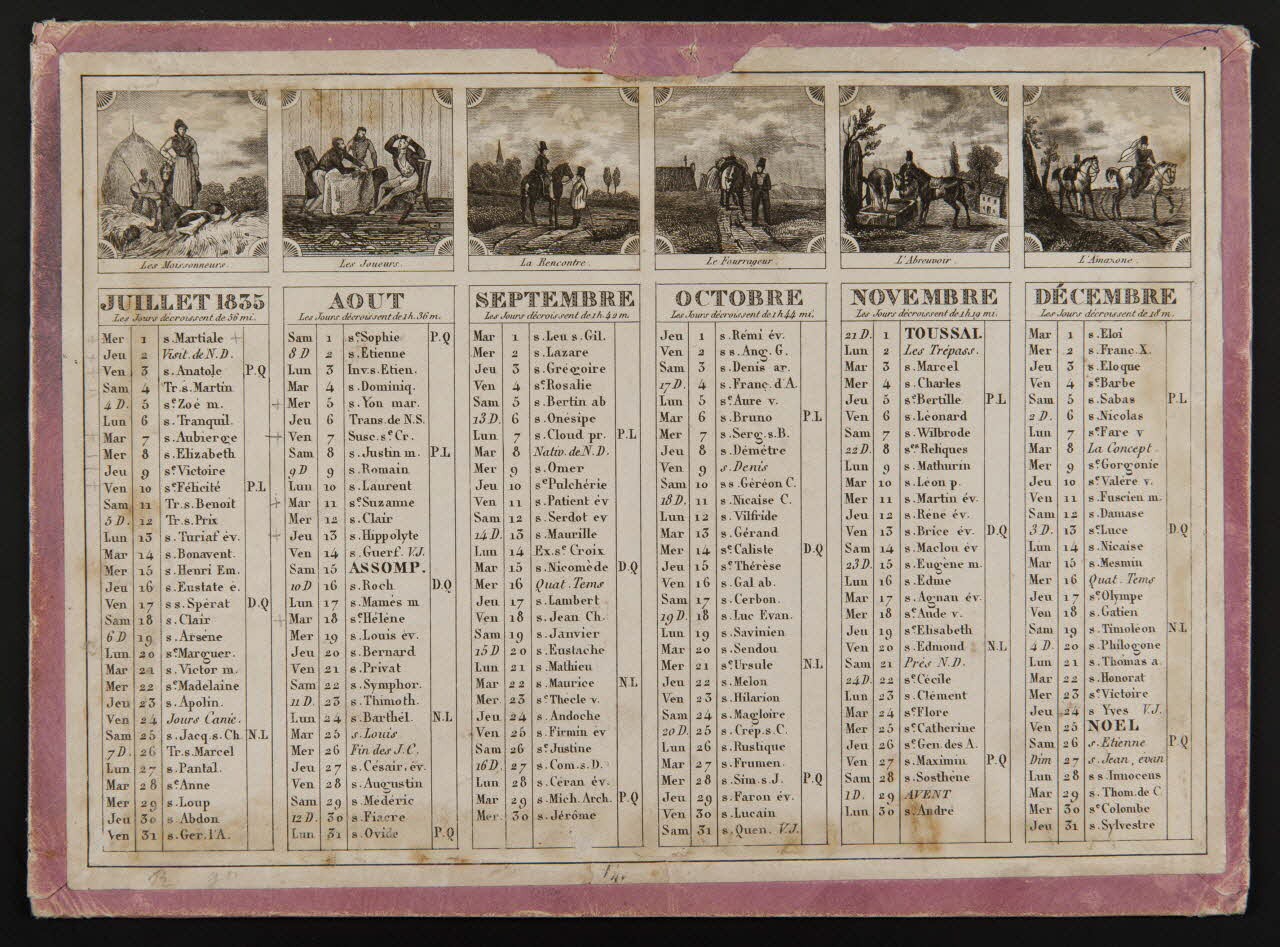 Les Moissonneurs.
Les Joueurs.
La Rencontre.
Le Fourrageur.
L'Abreuvoir.
L'Amazone.
JUILLET 1835
Les Jours décroissent de 56 mi.
Mer 1 s. Martiale
Jeu 2 Visit. de N.D.
Ven 3 s. Anatole P.Q
Sam 4 Tr. s. Martin
4 D. 5 se. Zoé m.
Lun 6 s. Tranquil.
Mar 7 s. Aubierge
Mer 8 s. Elizabeth
Jeu 9 se. Victoire
Ven 10 se. Félicité P.L
Sam 11 Tr. s. Benoit
5 D. 12 Tr. s. Prix
Lun 13 s. Turiaf év.
Mar 14 s. Bonavent.
Mer 15 s. Henri Em.
Jeu 16 s. Eustate é.
Ven 17 ss. Spérat D.Q
Sam 18 s. Clair
6 D 19 s. Arsène
Lun 20 se. Marguer.
Mar 21 s. Victor m.
Mer 22 se. Madelaine
Jeu 23 s. Apolin.
Ven 24 Jours Canic.
Sam 25 s. Jacq. s. Ch. N.L
7 D. 26 Tr. s. Marcel
Lun 27 s. Pantal.
Mar 28 se. Anne
Mer 29 s. Loup
Jeu 30 s. Abdon
Ven 31 s. Ger. l'A.
AOUT
Les Jours décroissent de 1h. 36 m.
Sam 1 se. Sophie P.Q
8 D 2 s. Etienne
Lun 3 Inv. s. Etien.
Mar 4 s. Dominiq.
Mer 5 s. Yon mar.
Jeu 6 Trans. de N.S.
Ven 7 Susc. se. Cr.
Sam 8 s. Justin m. P.L
9 D 9 s. Romain
Lun 10 s. Laurent
Mar 11 se. Suzanne
Mer 12 s. Clair
Jeu 13 s. Hippolyte
Ven 14 s. Guerf. V.J.
Sam 15 ASSOMP.
10 D 16 s. Roch D.Q
Lun 17 s. Mamès m
Mar 18 se. Hélène
Mer 19 s. Louis év.
Jeu 20 s. Bernard
Ven 21 s. Privat
Sam 22 s. Symphor.
11 D. 23 s. Thimoth.
Lun 24 s. Barthél. N.L
Mar 25 s. Louis
Mer 26 Fin des J.C.
Jeu 27 s. Césair. év.
Ven 28 s. Augustin
Sam 29 s. Médéric
12 D. 30 s. Fiacre
Lun 31 s. Ovide P.Q
SEPTEMBRE
Les Jours décroissent de 1h. 42 m.
Mar 1 s. Leu s. Gil.
Mer 2 s. Lazare
Jeu 3 s. Grégoire
Ven 4 se. Rosalie
Sam 5 s. Bertin ab
13 D. 6 s. Onésipe
Lun 7 s. Cloud pr. P.L
Mar 8 Nativ. de N.D.
Mer 9 s. Omer
Jeu 10 se. Pulchérie
Ven 11 s. Patient év
Sam 12 s. Serdot ev
14 D. 13 s. Maurille
Lun 14 Ex. se. Croix
Mar 15 s. Nicomède D.Q
Mer 16 Quat. Tems
Jeu 17 s. Lambert
Ven 18 s. Jean Ch.
Sam 19 s. Janvier
15 D 20 s. Eustache
Lun 21 s. Mathieu
Mar 22 s. Maurice N.L
Mer 23 se. Thecle v.
Jeu 24 s. Andoche
Ven 25 s. Firmin év
Sam 26 se. Justine
16 D. 27 s. Com. s. D.
Lun 28 s. Céran év.
Mar 29 s. Mich. Arch. P.Q
Mer. 30 s. Jérôme
OCTOBRE
Les Jours décroissent de 1h 44 mi.
Jeu 1 s. Rémi év.
Ven 2 ss. Ang. G.
Sam 3 s. Denis ar.
17 D. 4 s. Franç. d'A.
Lun 5 se. Aure v.
Mar 6 s. Bruno P.L
Mer 7 s. Serg. s. B.
Jeu 8 s. Démètre
Ven 9 s. Denis
Sam 10 ss. Géréon C.
18 D. 11 s. Nicaise C.
Lun 12 s. Vilfride
Mar 13 s. Gérand
Mer 14 se. Caliste D.Q
Jeu 15 se. Thérèse
Ven 16 s. Gal ab.
Sam 17 s. Cerbon.
19 D. 18 s. Luc Evan.
Lun 19 s. Savinien
Mar 20 s. Sendou
Mer 21 se. Ursule N.L
Jeu 22 s. Melon
Ven 23 s. Hilarion
Sam 24 s. Magloire
20 D. 25 s. Crép. s. C.
Lun 26 s. Rustique
Mar 27 s. Frumen.
Mer 28 s. Sim. s. J. P.Q
Jeu 29 s. Faron év.
Ven 30 s. Lucain
Sam 31 s. Quen. V.J.
NOVEMBRE
Les Jours décroissent de 1h 19 mi.
21 D. 1 TOUSSAI.
Lun 2 Les Trépass.
Mar 3 s. Marcel
Mer 4 s. Charles
Jeu 5 se. Bertille P.L
Ven 6 s. Léonard
Sam 7 s. Wilbrode
22 D. 8 ses Reliques
Lun 9 s. Mathurin
Mar 10 s. Léon p.
Mer 11 s. Martin év.
Jeu 12 s. Réné év.
Ven 13 s. Brice év. D.Q
Sam 14 s. Maclou év
23 D. 15 s. Eugène m.
Lun 16 s. Edme
Mar 17 s. Agnan év.
Mer 18 se. Aude v.
Jeu 19 se. Elisabeth
Ven 20 s. Edmond N.L
Sam 21 Prés N.D.
24 D. 22 se. Cécile
Lun 23 s. Clément
Mar 24 se. Flore
Mer 25 se. Catherine
Jeu 26 se. Gen. des A.
Ven 27 s. Maximin P.Q
Sam 28 s. Sosthène
1 D. 29 AVENT
Lun 30 s. André
DÉCEMBRE
Les Jours décroissent de 18 m.
Mar 1 s. Eloi
Mer 2 s. Franc. X.
Jeu 3 s. Eloque
Ven 4 se. Barbe
Sam 5 s. Sabas P.L
2 D. 6 s. Nicolas
Lun 7 se. Fare v
Mar 8 La Concept.
Mer 9 se. Gorgonie
Jeu 10 se. Valère v.
Ven 11 s. Fuscien m.
Sam 12 s. Damase
3 D. 13 se. Luce D.Q
Lun 14 s. Nicaise
Mar 15 s. Mesmin
Mer 16 Quat. Tems
Jeu 17 se. Olympe
Ven 18 s. Gatien
Sam 19 s. Timoléon N.L
4 D. 20 s. Philogone
Lun 21 s. Thomas a.
Mar 22 s. Honorat
Mer 23 se. Victoire
Jeu 24 s. Yves V.J.
Ven 25 NOEL
Sam 26 s. Etienne P.Q
Dim 27 s. Jean, evan
Lun 28 ss. Innocens
Mar 29 s. Thom. de C
Mer 30 se. Colombe
Jeu 31 s. Sylvestre